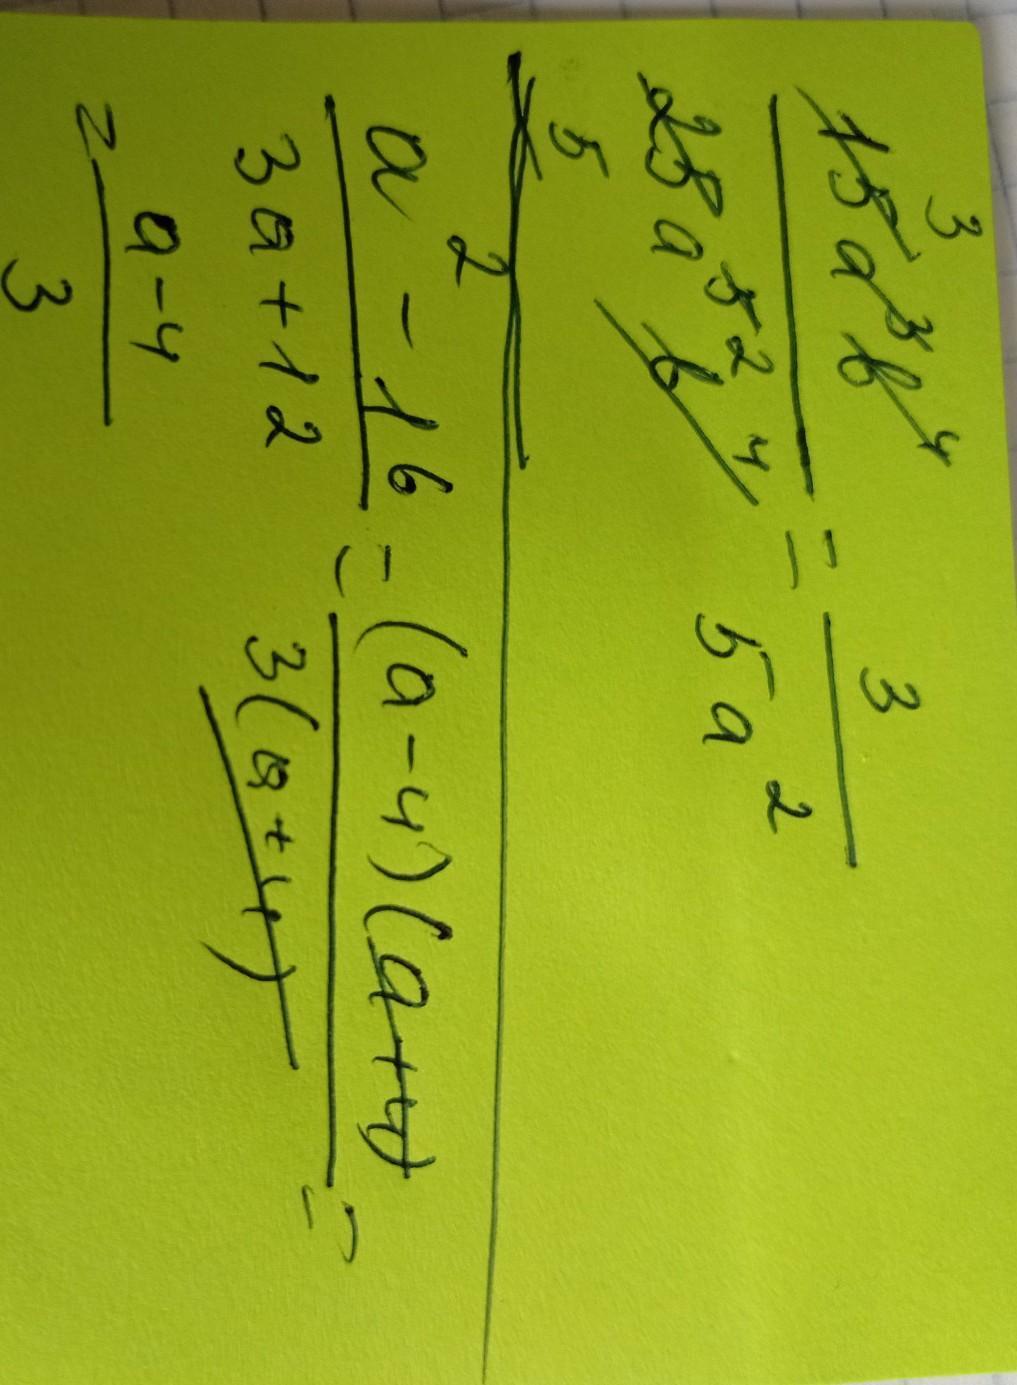 15a³b⁴ / 25a⁵b⁴ = 3 / 5a²
a² - 16 / 3a + 12 = (a - 4)(a + 4) / 3(a + 4) =
= a - 4 / 3